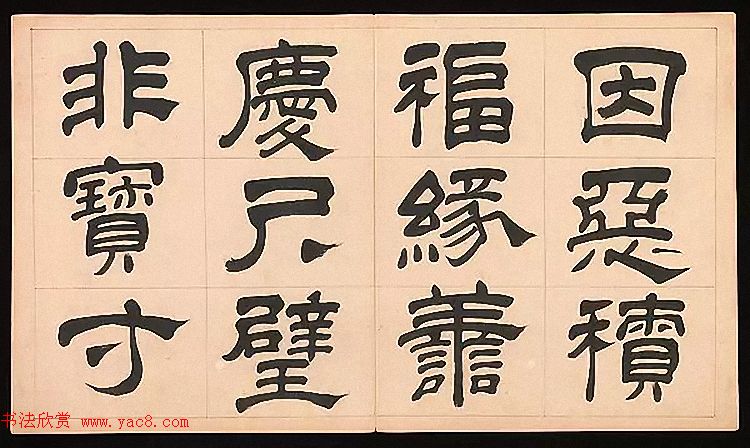 因惡積
福緣善
慶尺璧
非寶寸
书法欣赏 www.yac8.com